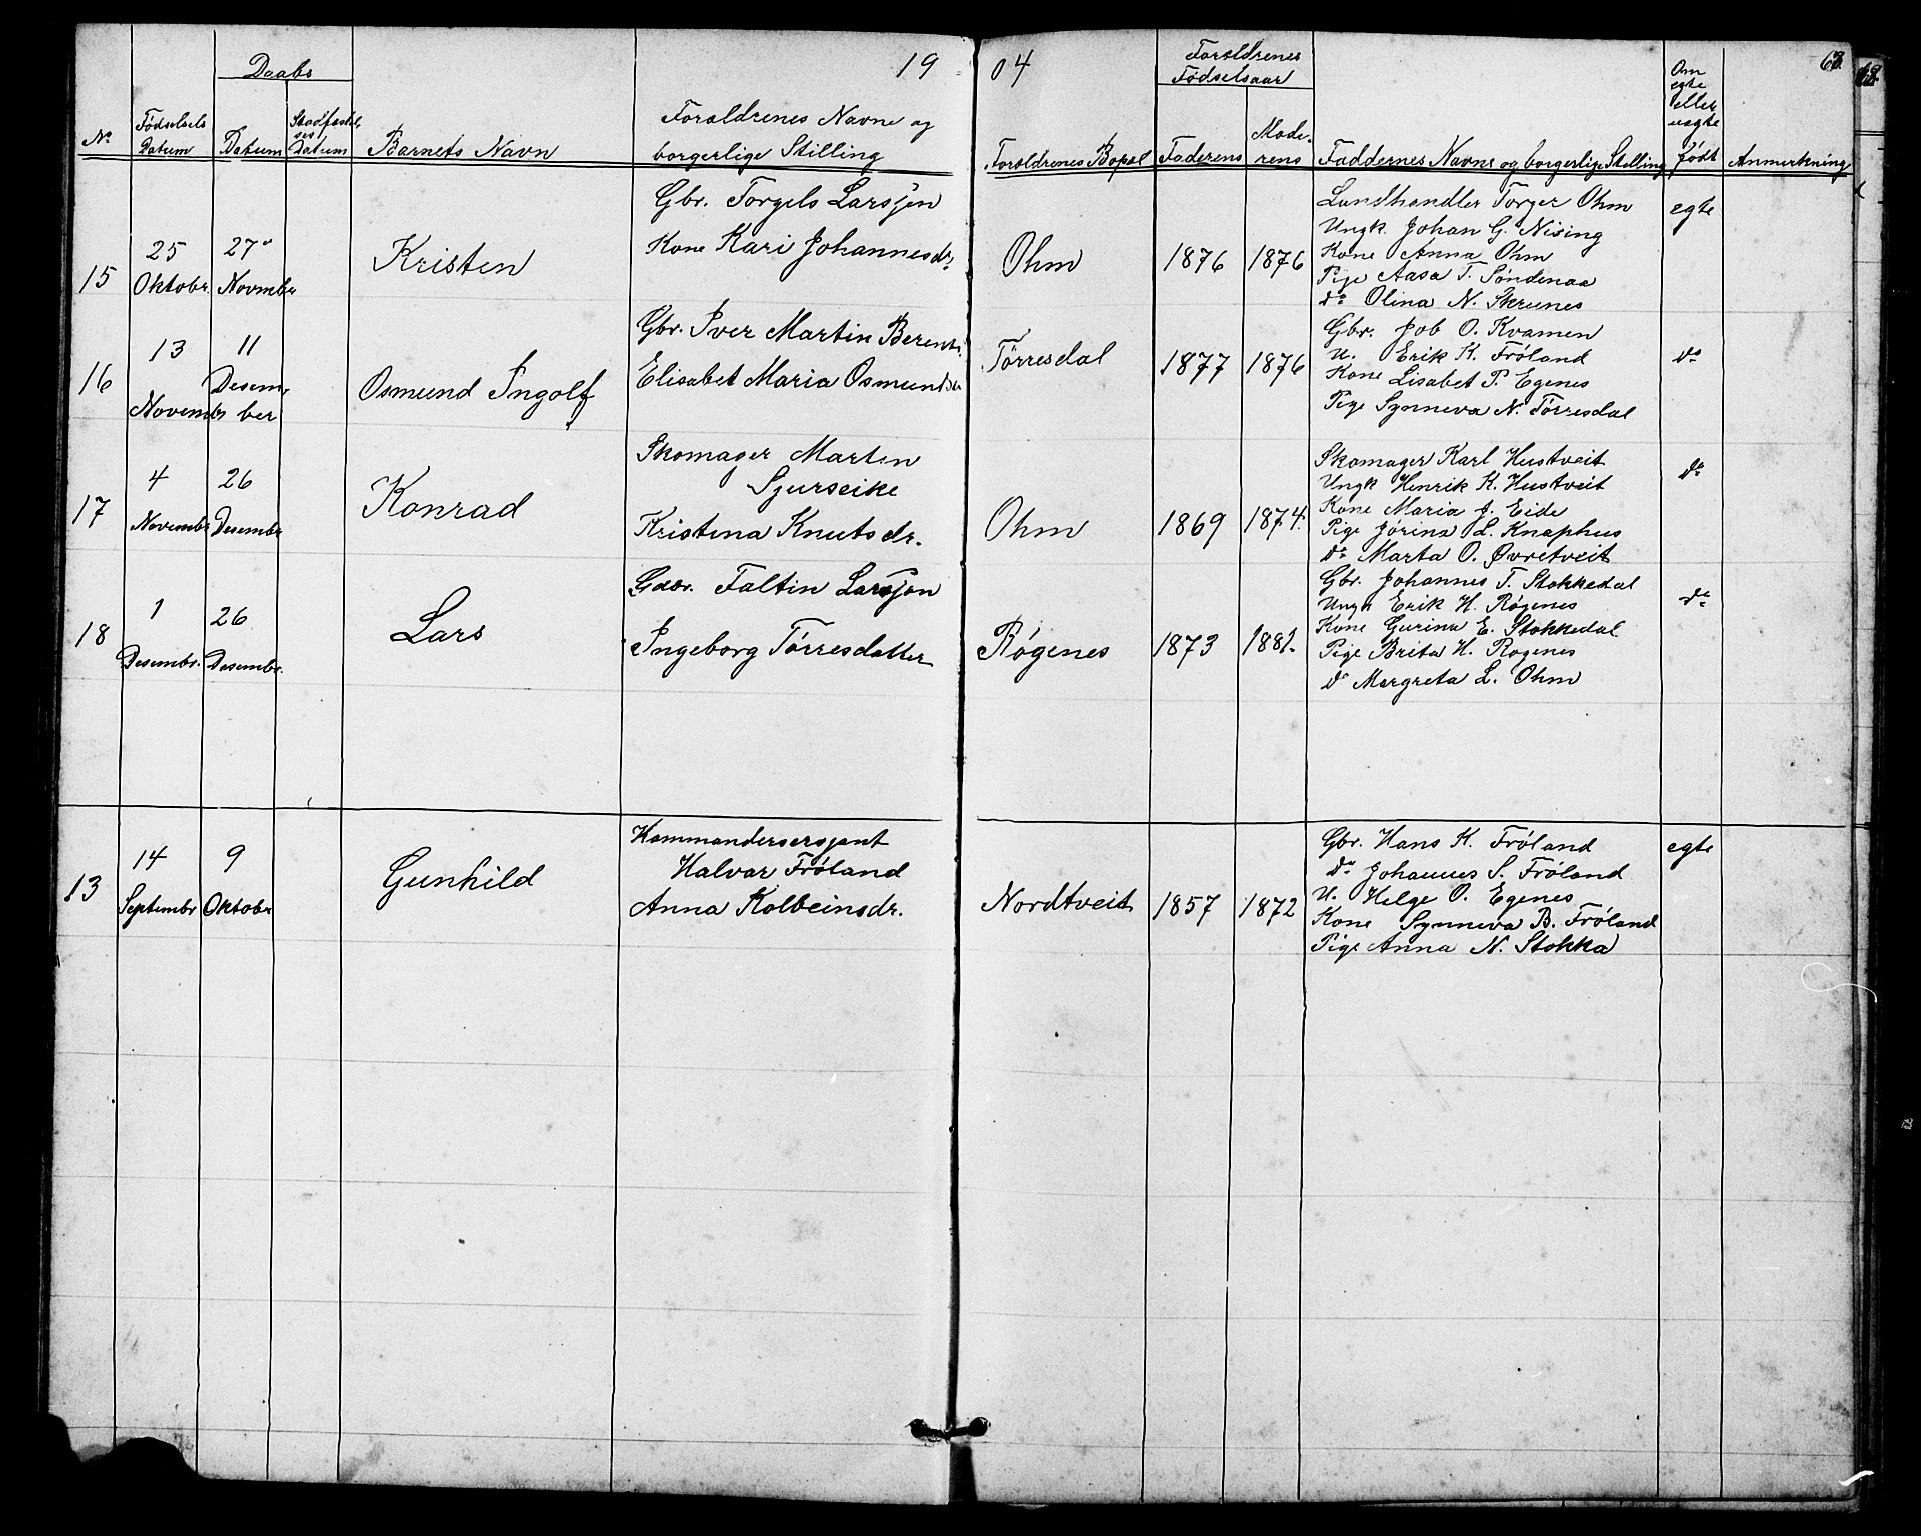 19 04
63.
Daabs
Forældrenes
Fødselsaar
Om
egte
eller
uegte
født
No
Fødselsels
Datum
Datum
Stadfæstel-
ses
Datum
Barnets Navn
Forældrenes Navne og
borgerlige Stilling
Forældrenes Bopæl
Faderens
Mode-
rens
Faddernes Navne og borgerlige Stilling
Anmerkning
15
25
Oktobr.
27
Novmbr
Kristen
Gbr. Torgels Larsjøn
Kone Kari Johannesdr.
Ohm
1876
1876
Landhandler Torger Ohm
Ungk. Johan G. Nising
Kone Anna Ohm
Pige Aasa T. Søndenaa
do Olina N. Skrunes
egte
16
13
Novembr
11
Desem-
ber
Osmund Ingolf
Gbr. Iver Martin Berents.
Elisabet Maria Osmundsdr
Tørresdal
1877
1876
Gbr. Job O. Kvamen
U. Erik K. Frøland
Kone Lisabet P. Egenes
Pige Synneva N. Tørresdal
do
17
4
Novembr
26
Desembr
Konrad
Skomager Marten
Sjurseike
Kristina Knutsdr.
Ohm
1869
1874.
Skomager Karl Hustveit
Ungk Henrik K. Hustveit
Kone Maria J. Eide
Pige Jørina L. Knaphus
do Marta O. Øvretveit
do
18
1
Desembr.
26
Desembr.
Lars
Gaar. Faltin Larsjøn
Ingeborg Tørresdatter
Røgenes
1873
1881.
Gbr. Johannes T. Stokkedal
Ungk Erik H. Røgenes
Kone Gurina E. Stokkedal
Pige Brita H. Rogenes
do Margreta L. Ohm
do
13
14
Septembr
9
Oktobr
Gunhild
Kommandersersjant
Halvar Frøland
Anna Kolbeinsdr.
Nordtveit
1857
1872
Gbr. Hans K. Frøland
do Johannes S. Frøland
U. Helge O. Egenes
Kone Synneva B. Frøland
Pige Anna N. Stokka
egte